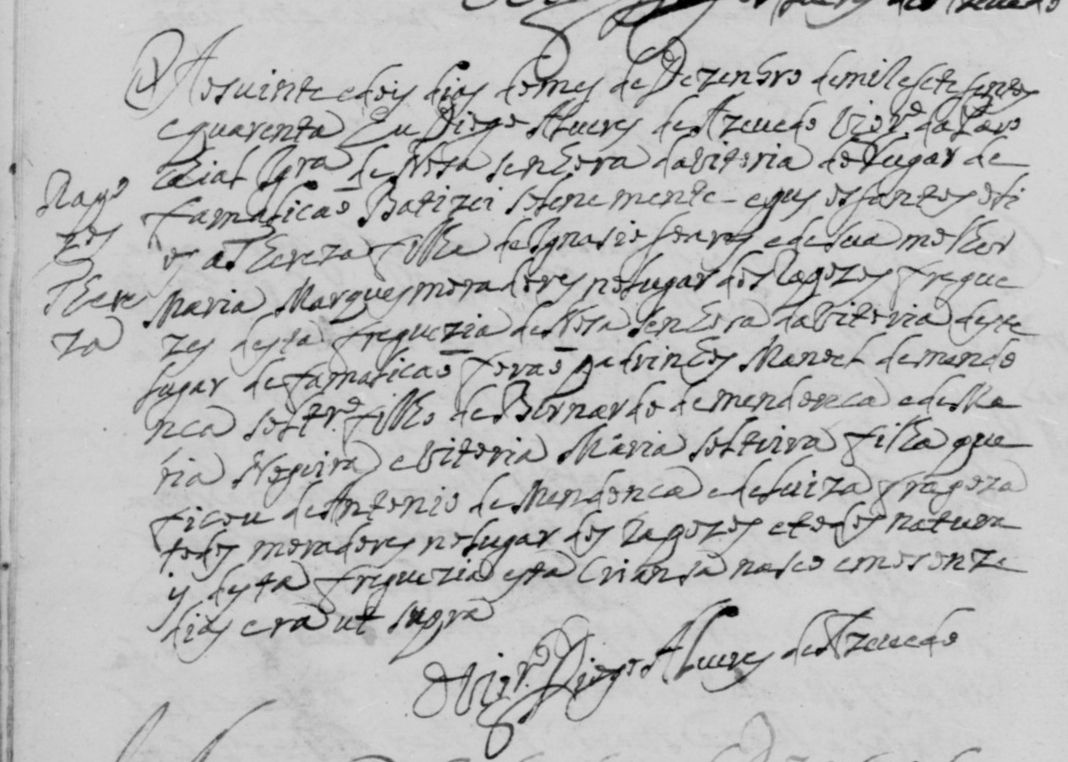 Ragozes
Thereza
Aos vinte e dois dias do mes de Dezenbro de mil e sete sentos
e quarenta Eu Diogo Alveres de Azevedo Vigr.º da Paro
chial Igra de Nosa Senhora da Vitoria do Lugar de
famalicaõ Batizei solene mente e pus os santos oli
os a Thereza filha de Ignasio soares e de sua molher
Maria Marques moradores no lugar dos Ragozes fregue
zes desta freguezia de Nosa Senhora da Vitoria deste
lugar de famalicaõ foraõ padrinhos Manoel de mendo
nca soltrº filho de Bernardo de mendonca e de Ma
ria Nogeira e Vitoria Maria solteira filha que
ficou de Antonio de Mendonca e de Luiza fragoza
todos moradores no lugar dos Ragozes e todos natura
is desta freguezia esta Criansa nasco em os onze
dias era ut supra
O Vigrº Diogo Alveres de Azevedo